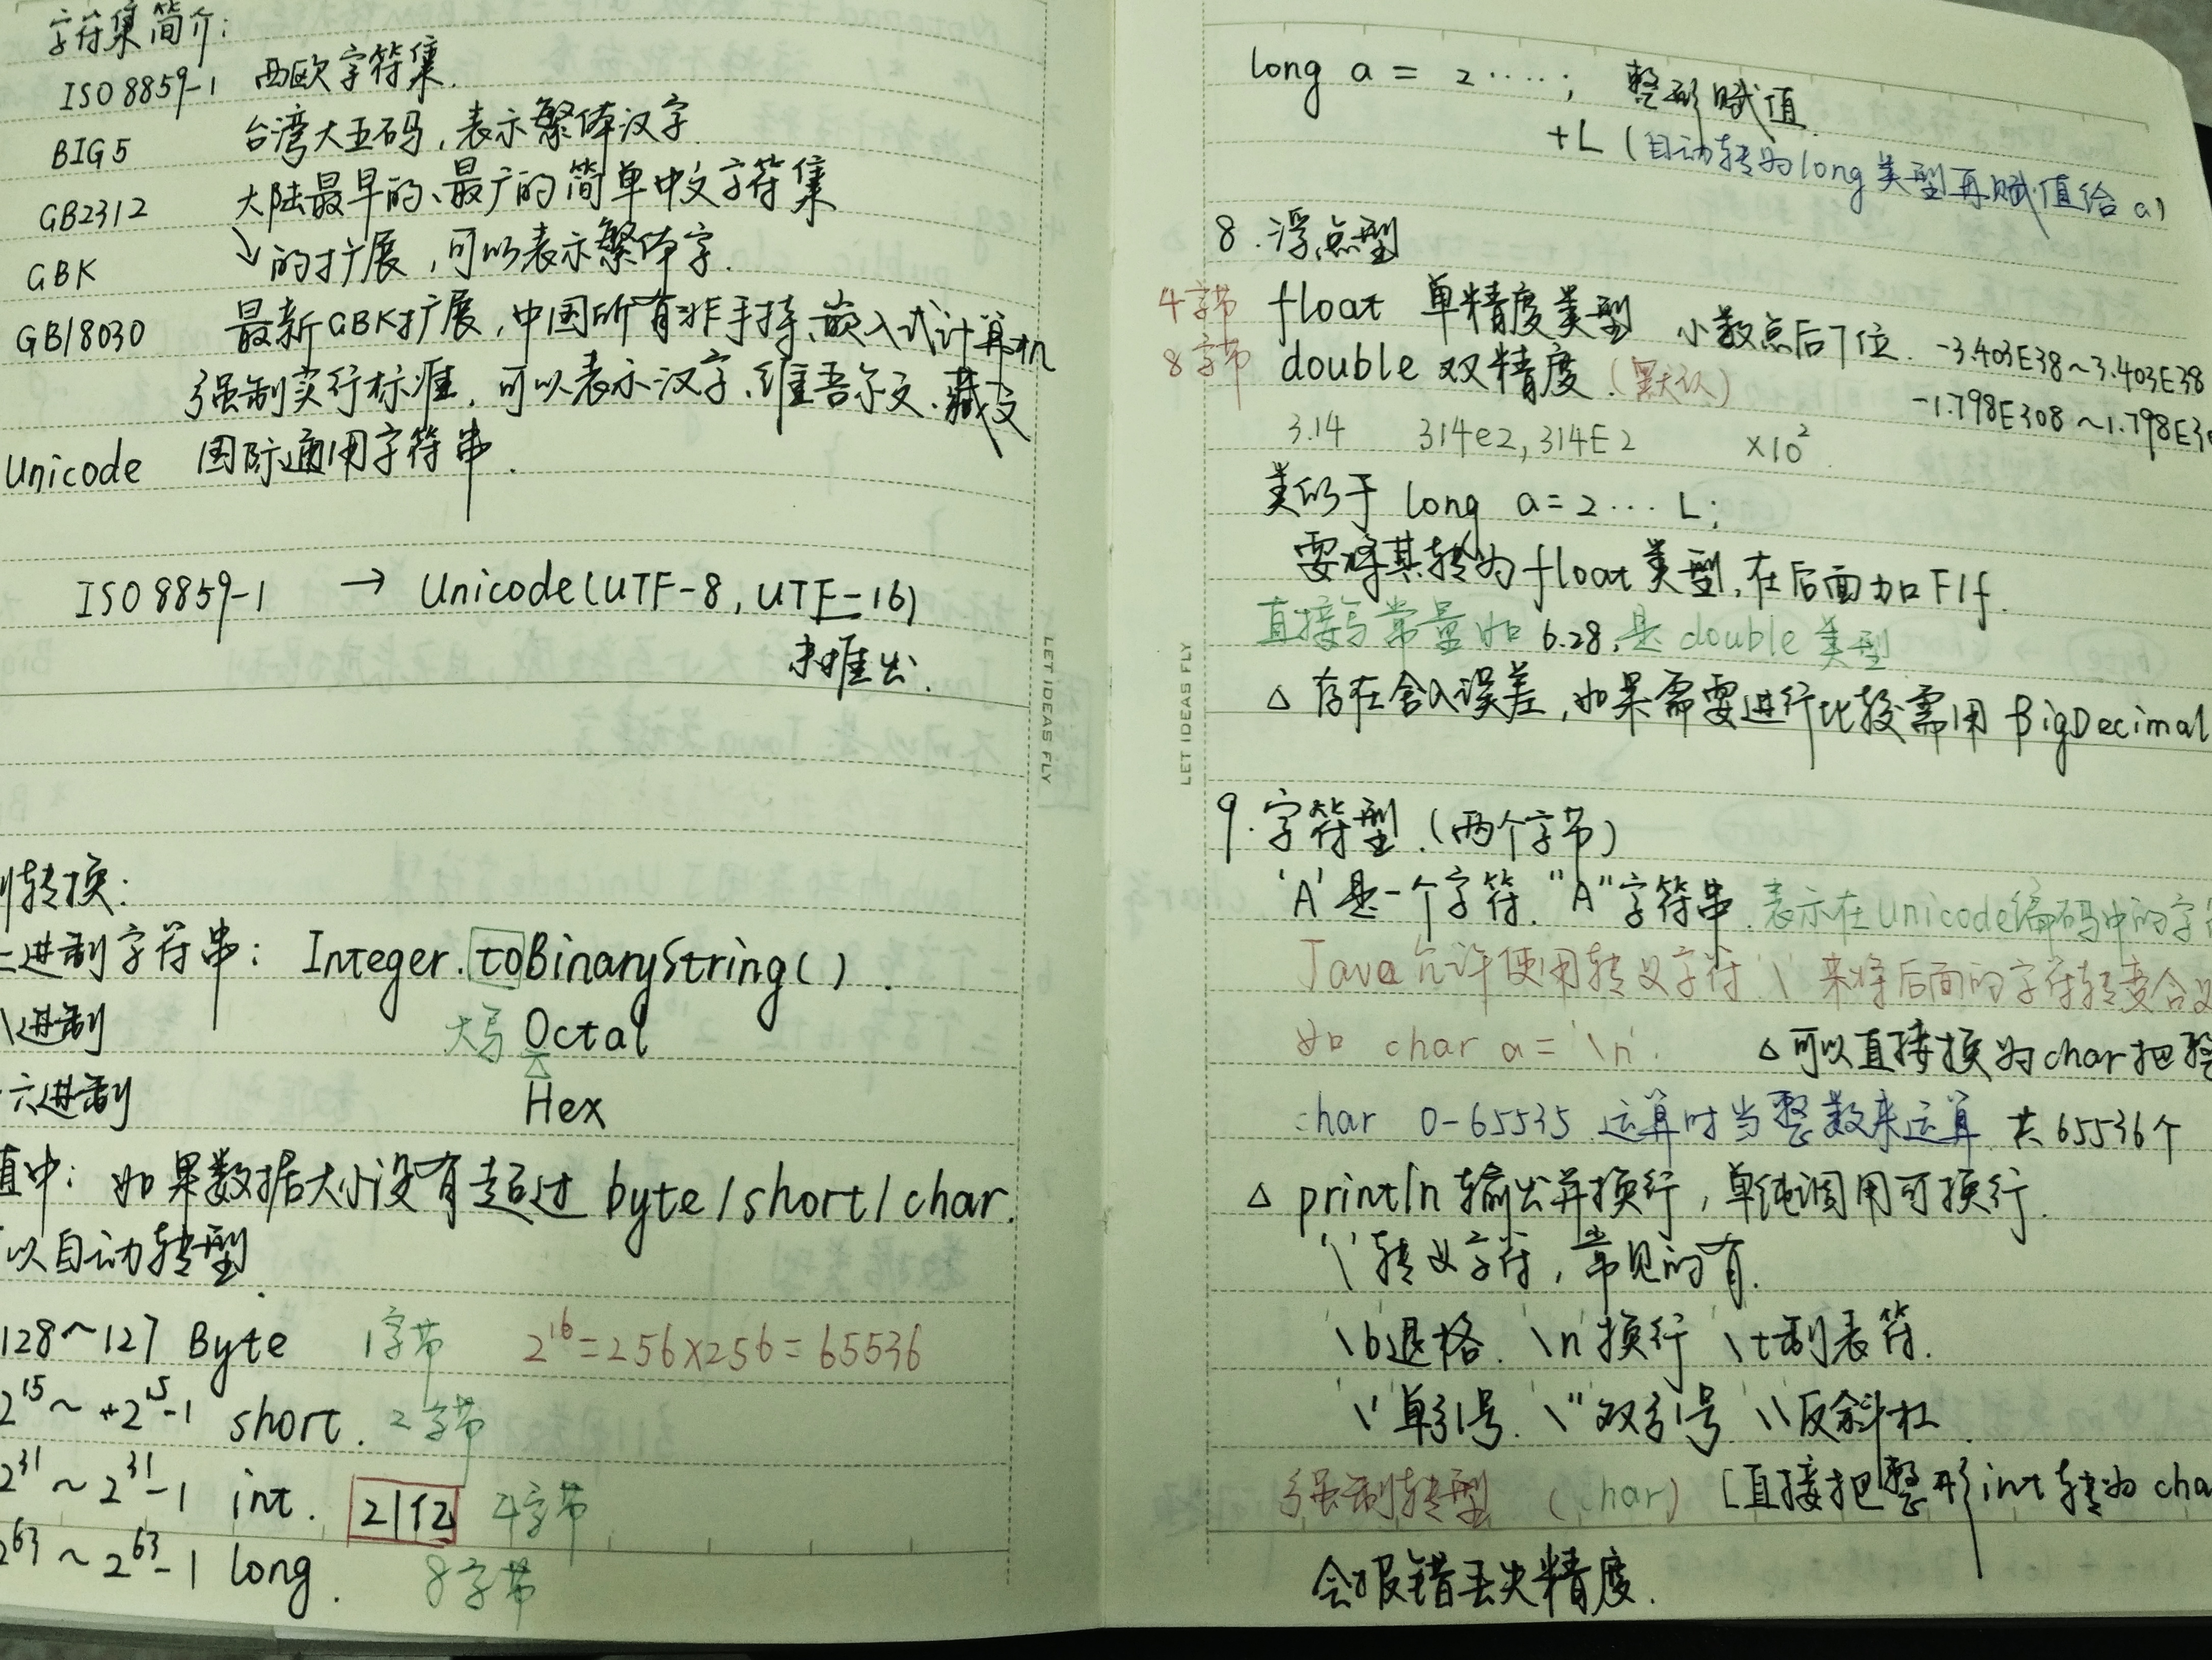 字符集简介:
ISO8859-1 西欧字符集.
BIG5 台湾大五码,表示繁体汉字
GB2312 大陆最早的、最广的简单中文字符集
GBK ↘的扩展,可以表示繁体字.
GB18030 最新GBK扩展,中国所有非手持、嵌入式计算机
强制实行标准.可以表示汉字、维吾尔文.藏文
Unicode 国际通用字符串.
ISO8859-1 → Unicode(UTF-8,UTF-16)
未推出.
LET IDEAS FLY
制转换:
二进制字符串: Integer.toBinaryString().
八进制 大写 Octal
十六进制 Hex
值中:如果数据大小没有超过 byte/short/char.
以自动转型.
128~127 Byte 1字节 2¹⁶=256×256=65536
2¹⁵~+2¹⁵-1 short. 2字节
2³¹~2³¹-1 int. 21亿 4字节
2⁶³~2⁶³-1 long. 8字节
long a = 2·····; 整形赋值.
+L (自动转为long类型再赋值给a)
8.浮点型
4字节 float 单精度类型 小数点后7位. -3.403E38~3.403E38
8字节 double 双精度.(默认) -1.798E308~1.798E3
3.14 314e2,314E2 ×10².
类似于 long a=2··· L;
要将其转为float类型,在后面加F/f.
直接写常量如6.28,是double类型
△ 存在舍入误差,如果需要进行比较需用 BigDecimal
LET IDEAS FLY
9.字符型.(两个字节)
'A'是一个字符."A"字符串.表示在Unicode编码中的字
Java允许使用转义字符'\'来将后面的字符转变含义
如 char a='\n'. △可以直接换为char把整
char 0-65535.运算时当整数来运算 共65536个
△ println 输出并换行,单纯调用可换行.
'\'转义字符,常见的有.
\b退格. \n换行 \t制表符.
\'单引号. \"双引号 \\反斜杠.
强制转型 (char) [直接把整形int转为cha
会报错丢失精度.